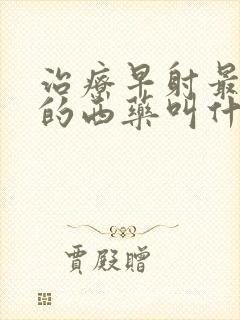 治療早射最
的西藥叫什
賈殿贈